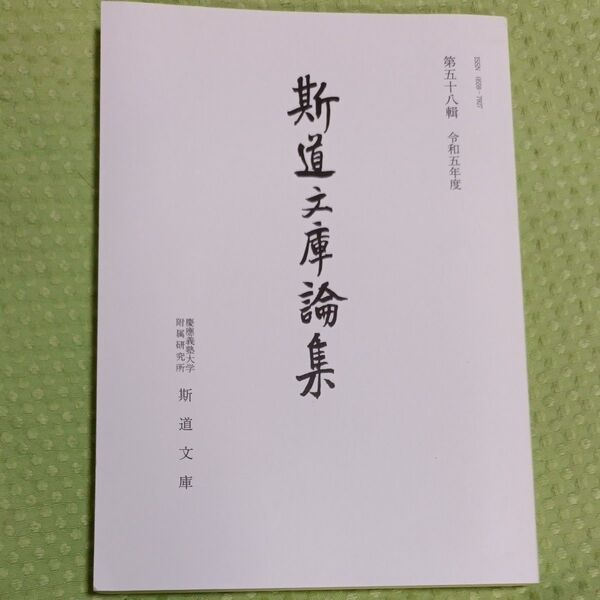 ISSN 0559-7927
第五十八輯 令和五年度
斯道文庫論集
慶應義塾大学
附属研究所
斯道文庫